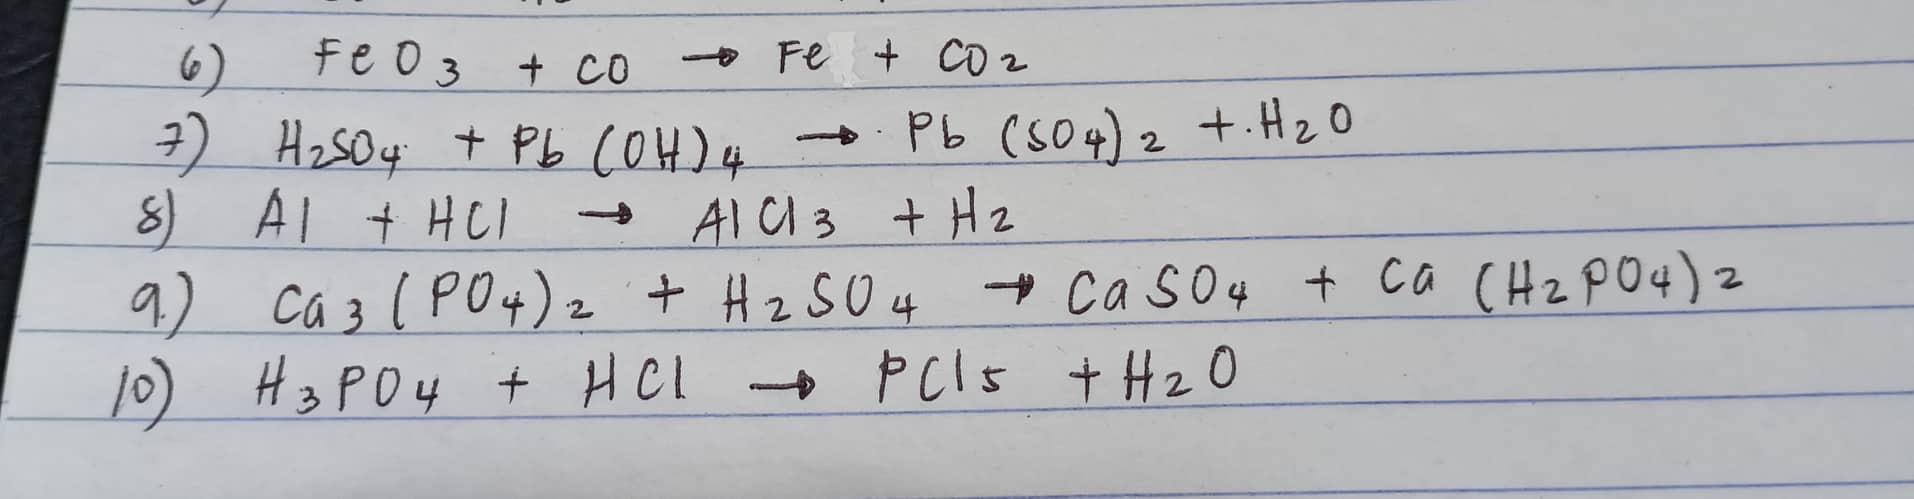 6) FeO3 + CO → Fe + CO2
7) H2SO4 + Pb (OH)4 → Pb (SO4)2 + H2O
8) Al + HCl → AlCl3 + H2
9.) Ca3(PO4)2 + H2SO4 → CaSO4 + Ca (H2PO4)2
10) H3PO4 + HCl → PCl5 + H2O